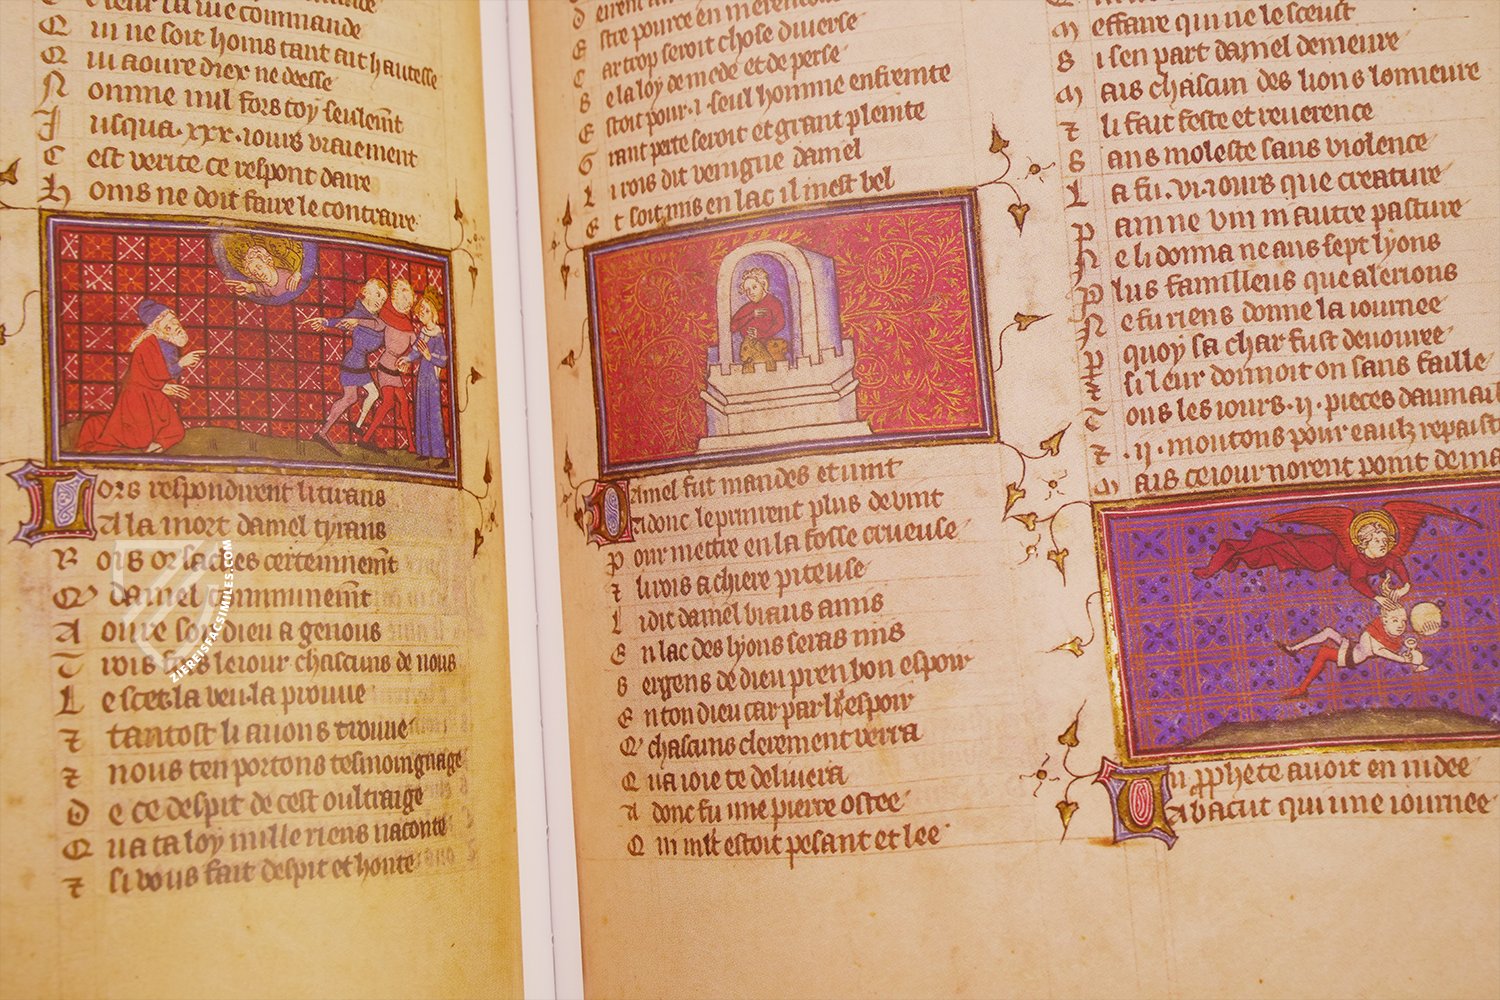 Q ui ne soit homs tant ait hautesse
Q ui aoure diex ne deesse
N omme nul fors toy seulemt
J usqua .xxx. iours vraiement
C est verite ce respont daire
H oms ne doit faire le contraire
L ors respondirent li tirans
A la mort daniel tyrans
R ois or saches certennemt
Q daniel
A oure son dieu a genous
T rois fois le iour chascuns de nous
L e scet la veu la prouue
⁊ tantost li auons trouue
⁊ nous ten portons tesmoingnage
D e ce despit de cest oultraige
Q ua ta loy mille riens naconte
⁊ si vous fait despit et honte
ZIEREISFACSIMILES.COM
E stre pouree en
C ar trop seroit chose diuerse
S e la loy de mede et de perse
E stoit pour .i. seul homme enfreinte
G rant perte seroit et grant pleinte
L i rois dit veingne daniel
E t soit mis en lac il mest bel
D aniel fut mandes et vint
A donc le prinrent plus de vint
P our mettre en la fosse crueuse
⁊ li rois a chiere piteuse
L i dit daniel biaus amis
E n lac des lyons seras mis
S ergens de dieu pren bon espoir
E n ton dieu car par li espoir
Q chascuns clerement verra
Q ua ioie te deliuera
A donc fu une pierre ostee
Q ui mlt estoit pesant et lee
M effaire qui ne le sceust
S i sen part daniel demeure
M ais chascun des lions lonneure
⁊ li fait feste et reuerence
S ans moleste sans violence
L a fu .vi. iours que creature
P ain ne vin nautre pasture
N e li donna ne aus sept lyons
P lus familleus que alerions
N e fu riens donne la iournee
P quoy sa char fust deuouree
⁊ si leur donnoit on sans faille
T ous les iours .ii. pieces daumaille
⁊ .ii. moutons pour eaulz repaistre
M ais ce iour norent point de
U n pphete auoit en iudee
A bacut qui une iournee